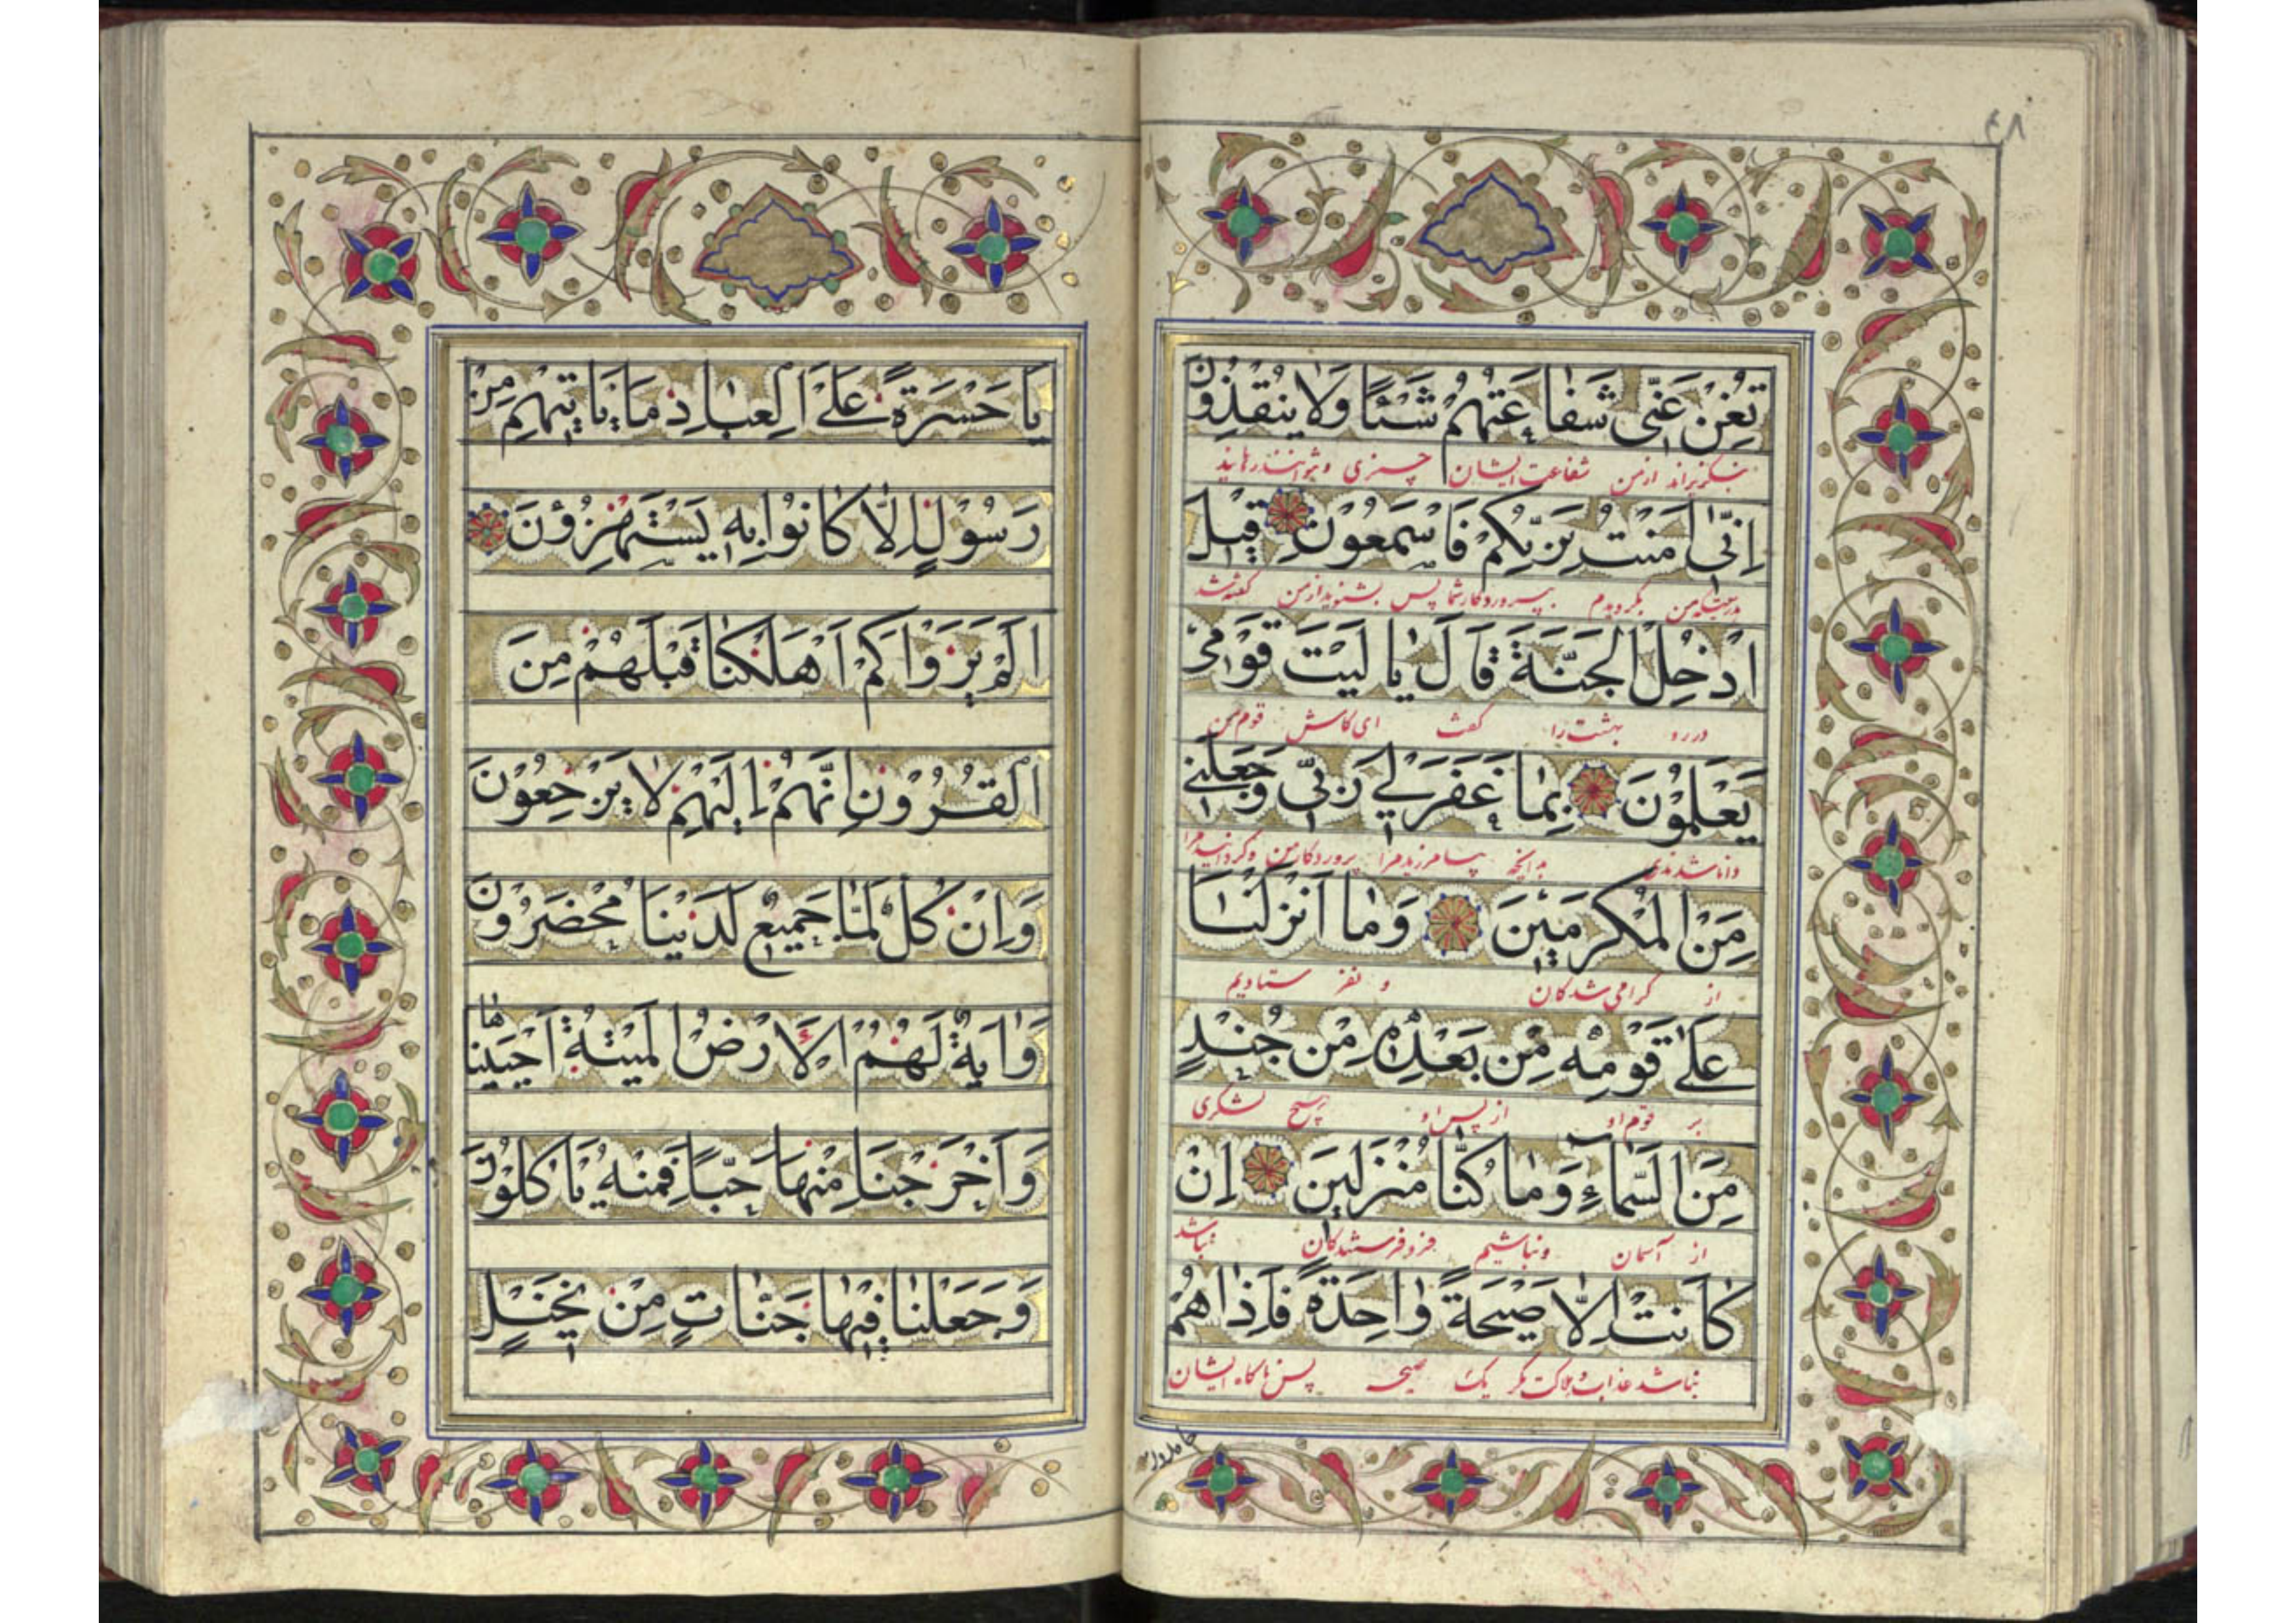 ٤٨
تُغْنِ عَنّی شَفاعَتُهُمْ شَئًا وَلا یُنْقِذُونِ
شفاعت ایشان چیزی
اِنّی اٰمَنْتُ بِرَبِّکُمْ فَاسْمَعُونِ قیلَ
بگرویدم بپروردگار شما پس بشنوید از من گفته شد
ادْخُلِ الْجَنَّةَ قالَ یا لَیْتَ قَوْمی
در رو بهشت را گفت ای کاش قوم من
یَعْلَمُونَ بِمٰا غَفَرَ لی رَبّی وَجَعَلَنی
بدانچه بیامرزید مرا پروردگار من و گردانید مرا
مِنَ الْمُکْرَمینَ وَمٰا اَنْزَلْنٰا
از گرامی شدگان و نفرستادیم
عَلیٰ قَوْمِهِ مِنْ بَعْدِهِ مِنْ جُنْدٍ
بر قوم او از پس او هیچ لشکری
مِنَ السَّمٰاءِ وَمٰا کُنّٰا مُنْزِلینَ اِنْ
از آسمان و نباشیم فرو فرستندگان نباشد
کٰانَتْ اِلّٰا صَیْحَةً وٰاحِدَةً فَاِذٰا هُمْ
نباشد عذاب و هلاکت مگر یک صیحه پس ناگاه ایشان
خامدون
یٰا حَسْرَةً عَلَی الْعِبٰادِ مٰا یَاْتیهِمْ مِنْ
رَسُولٍ اِلّٰا کٰانُوا بِهِ یَسْتَهْزِؤُنَ
اَلَمْ یَرَوْا کَمْ اَهْلَکْنٰا قَبْلَهُمْ مِنَ
الْقُرُونِ اَنَّهُمْ اِلَیْهِمْ لا یَرْجِعُونَ
وَاِنْ کُلٌّ لَمّٰا جَمیعٌ لَدَیْنٰا مُحْضَرُونَ
وَاٰیَةٌ لَهُمُ الْاَرْضُ الْمَیْتَةُ اَحْیَیْنٰاهٰا
وَاَخْرَجْنٰا مِنْهٰا حَبًّا فَمِنْهُ یَاْکُلُونَ
وَجَعَلْنٰا فیهٰا جَنّٰاتٍ مِنْ نَخیلٍ